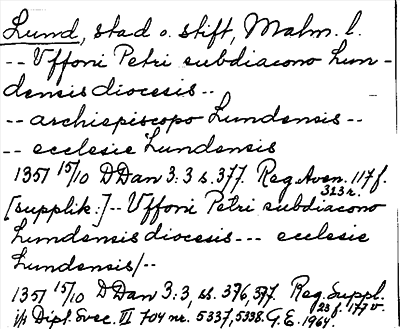 Lund, stad o. stift, Malm. l.
-- Uffoni Petri subdiacono Lun-
densis diocesis --
-- archiepiscopo Lundensis --
-- ecclesie Lundensis
1351 15/10 DDan 3:3 s. 377. Reg. Aven. 117 f.
313 r.
[supplik:] -- Uffoni Petri subdiacono
Lundensis diocesis --- ecclesie
Lundensis/--
1351 15/10 D Dan 3:3, ss. 376, 377. Reg. Suppl.
23 f. 177 v.
i/s Dipl. Svec. VI 704 nr. 5337, 5338. G.E. 1964.